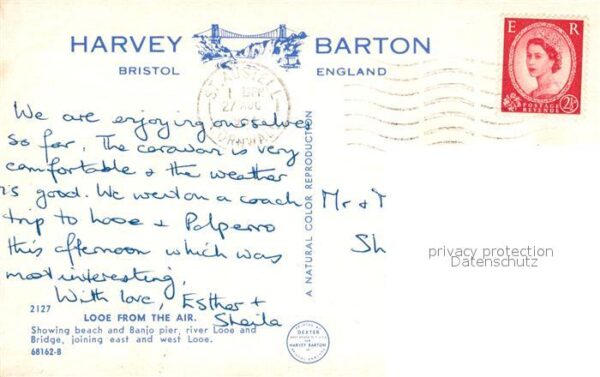 HARVEY BARTON
BRISTOL ENGLAND
E R
POSTAGE
REVENUE
2½
ST AUSTELL
CORNWALL
We are enjoying ourselves
so far. The caravan is very
comfortable & the weather
is good. We went on a coach
trip to Looe & Polperro
this afternoon which was
most interesting.
With love, Esther +
Sheila
A NATURAL COLOR REPRODUCTION
Mr &
Sh
privacy protection
Datenschutz
2127
LOOE FROM THE AIR.
Showing beach and Banjo pier, river Looe and
Bridge, joining east and west Looe.
68162-B
DEXTER
HARVEY BARTON